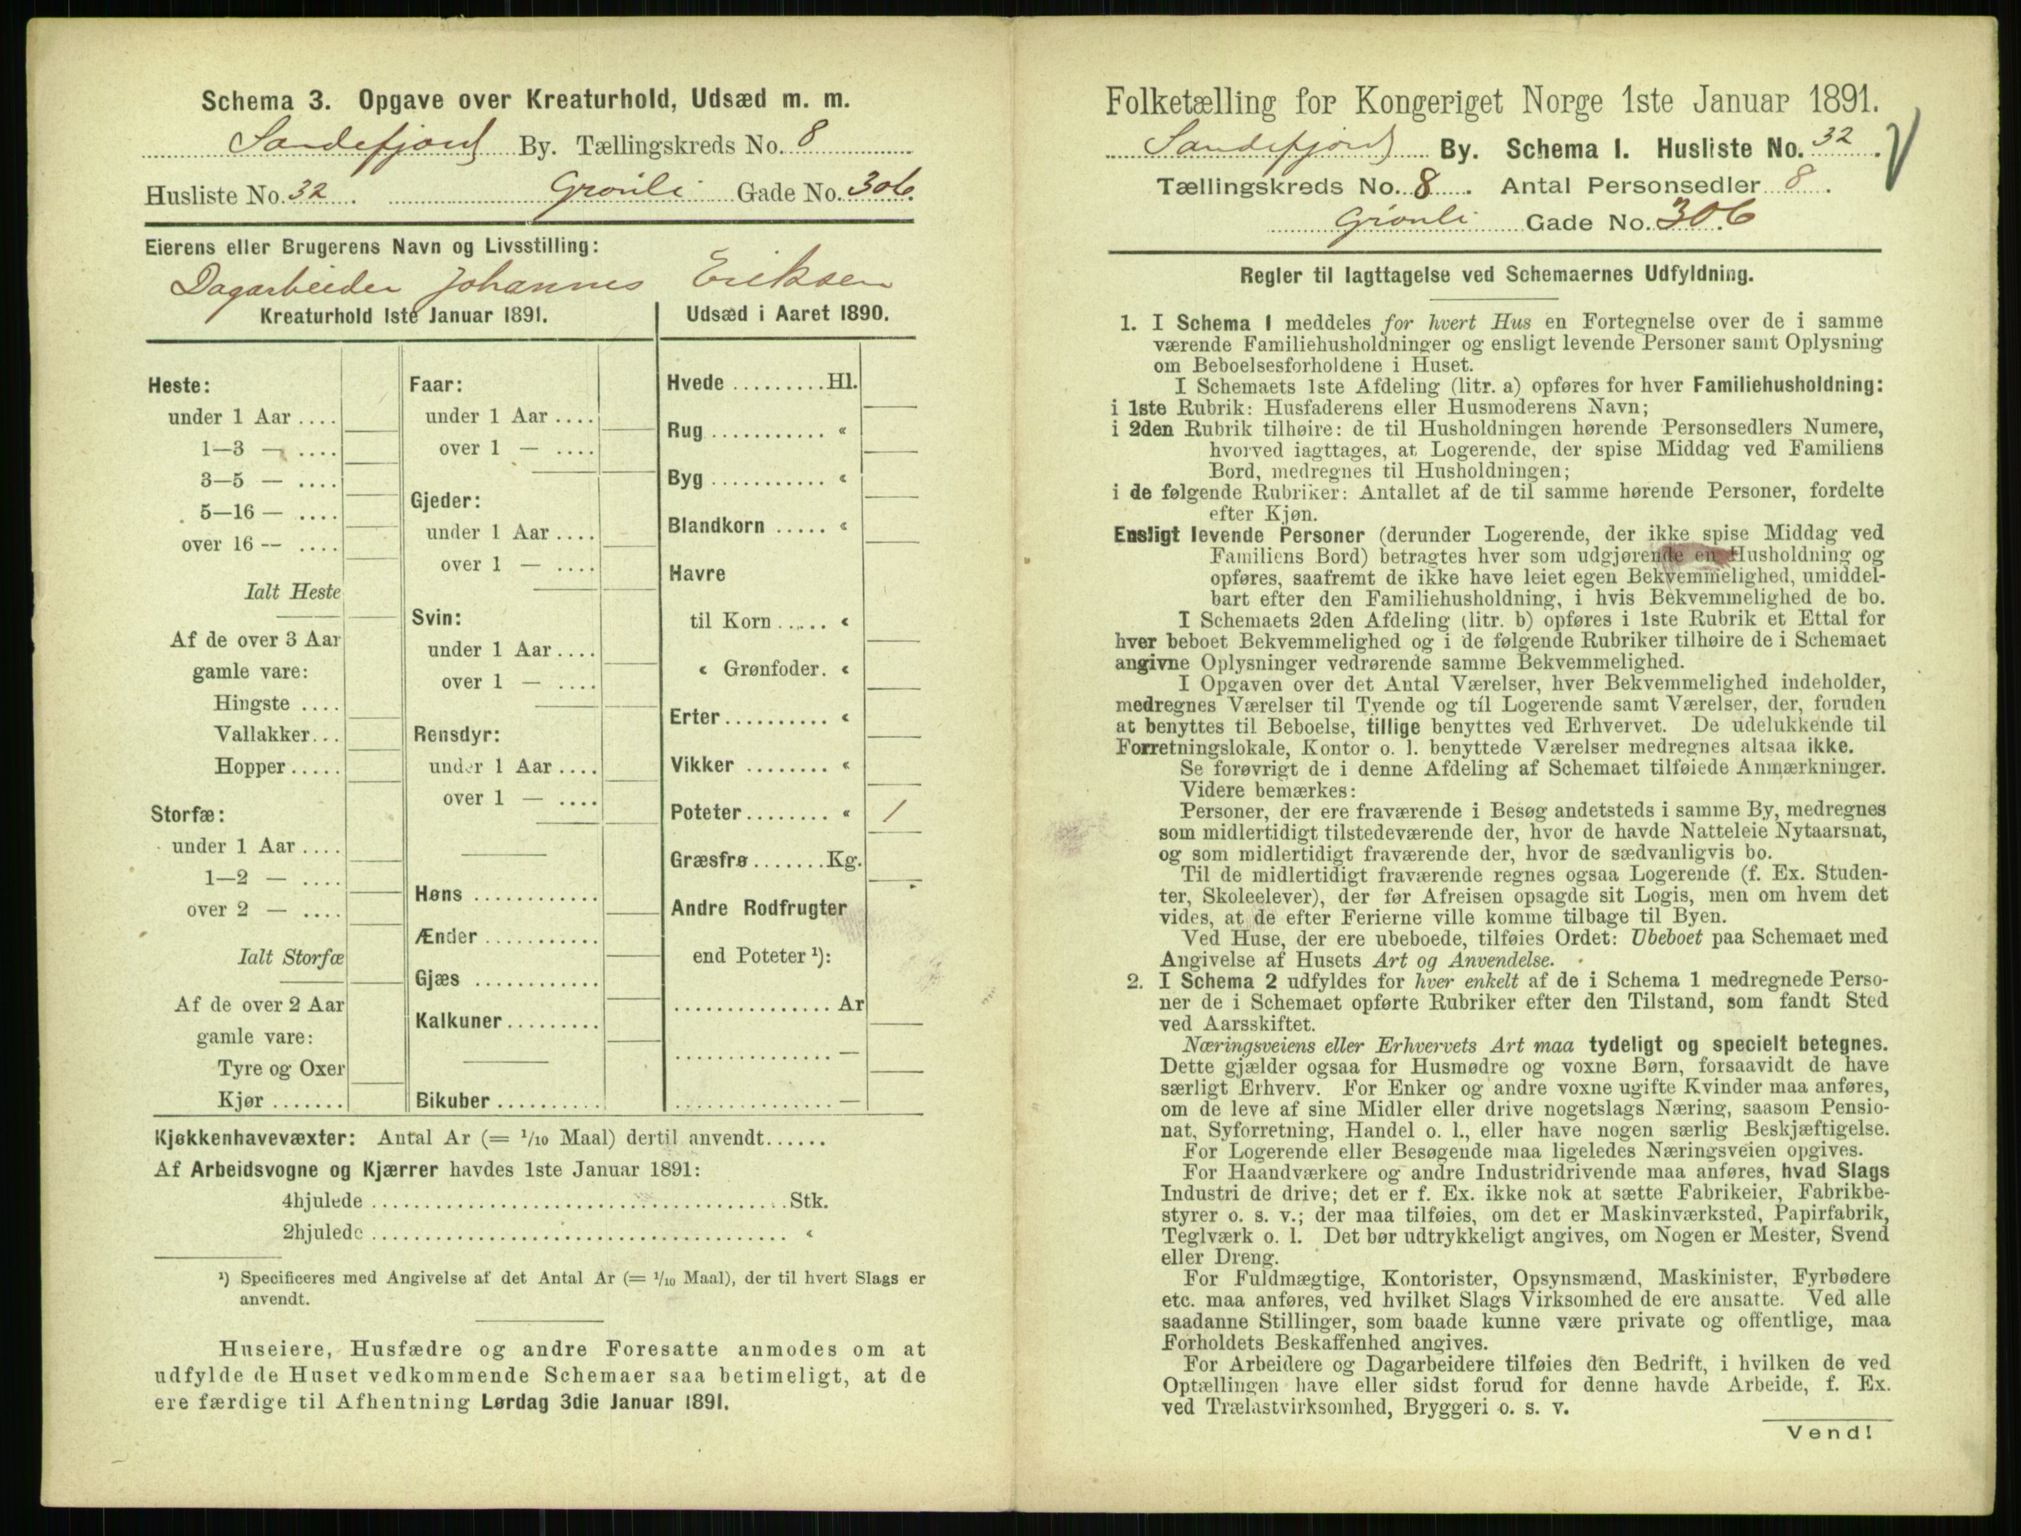 Schema 3. Opgave over Kreaturhold, Udsæd m. m.
Sandefjord By. Tællingskreds No. 8
Husliste No. 32. Grönli Gade No. 306.
Eierens eller Brugerens Navn og Livsstilling:
Dagarbeider Johannes Eriksen
Kreaturhold 1ste Januar 1891.
Heste:
under 1 Aar ....
1—3 — ....
3—5 — ....
5—16 — ....
over 16 — ....
Ialt Heste
Af de over 3 Aar
gamle vare:
Hingste ....
Vallakker...
Hopper.....
Storfæ:
under 1 Aar ....
1—2 — ....
over 2 — ....
Ialt Storfæ
Af de over 2 Aar
gamle vare:
Tyre og Oxer
Kjør .......
Faar:
under 1 Aar ....
over 1 — ....
Gjeder:
under 1 Aar ....
over 1 — ....
Svin:
under 1 Aar ....
over 1 — ....
Rensdyr:
under 1 Aar ....
over 1 — ....
Høns ............
Ænder ...........
Gjæs ............
Kalkuner.........
Bikuber ..........
Udsæd i Aaret 1890.
Hvede .........Hl.
Rug ........... «
Byg ........... «
Blandkorn ..... «
Havre
til Korn ..... «
« Grønfoder. «
Erter.......... «
Vikker ........ «
Poteter........ « 1
Græsfrø .......Kg.
Andre Rodfrugter
end Poteter ¹):
............... Ar
............... —
............... —
Kjøkkenhavevæxter: Antal Ar (= 1/10 Maal) dertil anvendt......
Af Arbeidsvogne og Kjærrer havdes 1ste Januar 1891:
4hjulede ....................................... Stk.
2hjulede ....................................... «
¹) Specificeres med Angivelse af det Antal Ar (= 1/10 Maal), der til hvert Slags er
anvendt.
Huseiere, Husfædre og andre Foresatte anmodes om at
udfylde de Huset vedkommende Schemaer saa betimeligt, at de
ere færdige til Afhentning Lørdag 3die Januar 1891.
Folketælling for Kongeriget Norge 1ste Januar 1891.
Sandefjord By. Schema I. Husliste No. 32.
Tællingskreds No. 8. Antal Personsedler 8.
Grönli Gade No. 306
Regler til Iagttagelse ved Schemaernes Udfyldning.
1. I Schema I meddeles for hvert Hus en Fortegnelse over de i samme
værende Familiehusholdninger og ensligt levende Personer samt Oplysning
om Beboelsesforholdene i Huset.
I Schemaets 1ste Afdeling (litr. a) opføres for hver Familiehusholdning:
i 1ste Rubrik: Husfaderens eller Husmoderens Navn;
i 2den Rubrik tilhøire: de til Husholdningen hørende Personsedlers Numere,
hvorved iagttages, at Logerende, der spise Middag ved Familiens
Bord, medregnes til Husholdningen;
i de følgende Rubriker: Antallet af de til samme hørende Personer, fordelte
efter Kjøn.
Ensligt levende Personer (derunder Logerende, der ikke spise Middag ved
Familiens Bord) betragtes hver som udgjørende en Husholdning og
opføres, saafremt de ikke have leiet egen Bekvemmelighed, umiddel-
bart efter den Familiehusholdning, i hvis Bekvemmelighed de bo.
I Schemaets 2den Afdeling (litr. b) opføres i 1ste Rubrik et Ettal for
hver beboet Bekvemmelighed og i de følgende Rubriker tilhøire de i Schemaet
angivne Oplysninger vedrørende samme Bekvemmelighed.
I Opgaven over det Antal Værelser, hver Bekvemmelighed indeholder,
medregnes Værelser til Tyende og til Logerende samt Værelser, der, foruden
at benyttes til Beboelse, tillige benyttes ved Erhvervet. De udelukkende til
Forretningslokale, Kontor o. l. benyttede Værelser medregnes altsaa ikke.
Se forøvrigt de i denne Afdeling af Schemaet tilføiede Anmærkninger.
Videre bemærkes:
Personer, der ere fraværende i Besøg andetsteds i samme By, medregnes
som midlertidigt tilstedeværende der, hvor de havde Natteleie Nytaarsnat,
og som midlertidigt fraværende der, hvor de sædvanligvis bo.
Til de midlertidigt fraværende regnes ogsaa Logerende (f. Ex. Studen-
ter, Skoleelever), der før Afreisen opsagde sit Logis, men om hvem det
vides, at de efter Ferierne ville komme tilbage til Byen.
Ved Huse, der ere ubeboede, tilføies Ordet: Ubeboet paa Schemaet med
Angivelse af Husets Art og Anvendelse.
2. I Schema 2 udfyldes for hver enkelt af de i Schema 1 medregnede Perso-
ner de i Schemaet opførte Rubriker efter den Tilstand, som fandt Sted
ved Aarsskiftet.
Næringsveiens eller Erhvervets Art maa tydeligt og specielt betegnes.
Dette gjælder ogsaa for Husmødre og voxne Børn, forsaavidt de have
særligt Erhverv. For Enker og andre voxne ugifte Kvinder maa anføres,
om de leve af sine Midler eller drive nogetslags Næring, saasom Pensio-
nat, Syforretning, Handel o. l., eller have nogen særlig Beskjæftigelse.
For Logerende eller Besøgende maa ligeledes Næringsveien opgives.
For Haandværkere og andre Industridrivende maa anføres, hvad Slags
Industri de drive; det er f. Ex. ikke nok at sætte Fabrikeier, Fabrikbe-
styrer o. s. v.; der maa tilføies, om det er Maskinværksted, Papirfabrik,
Teglværk o. l. Det bør udtrykkeligt angives, om Nogen er Mester, Svend
eller Dreng.
For Fuldmægtige, Kontorister, Opsynsmænd, Maskinister, Fyrbødere
etc. maa anføres, ved hvilket Slags Virksomhed de ere ansatte. Ved alle
saadanne Stillinger, som baade kunne være private og offentlige, maa
Forholdets Beskaffenhed angives.
For Arbeidere og Dagarbeidere tilføies den Bedrift, i hvilken de ved
Optællingen have eller sidst forud for denne havde Arbeide, f. Ex.
ved Trælastvirksomhed, Bryggeri o. s. v.
Vend!